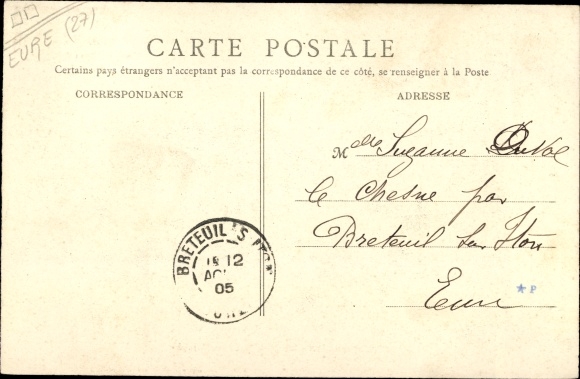 EURE (27)
CARTE POSTALE
Certains pays étrangers n'acceptant pas la correspondance de ce côté, se renseigner à la Poste
CORRESPONDANCE
ADRESSE
Melle Suzanne Duval
le Chesne par
Breteuil sur Iton
Eure
* P
BRETEUIL S
12
05